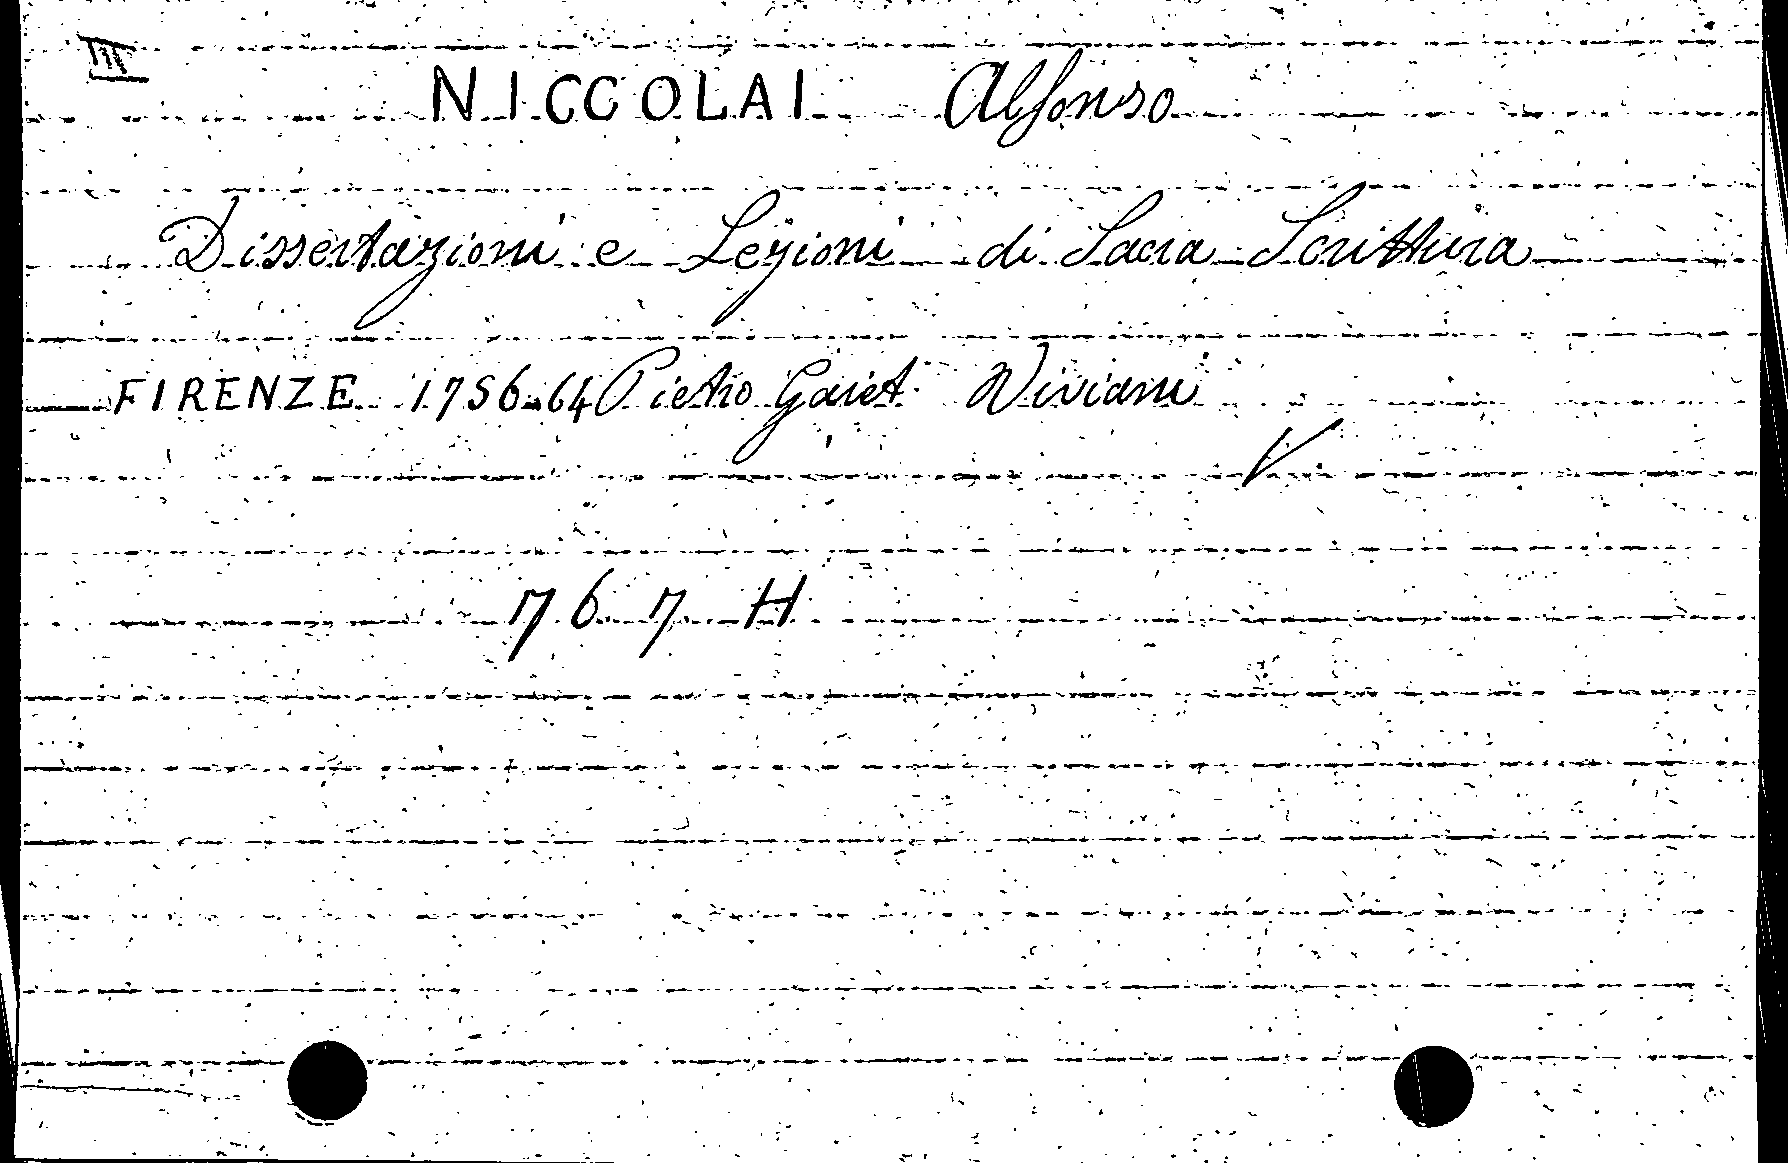 III
NICCOLAI Alfonso
Dissertazioni e Lezioni di Sacra Scrittura
FIRENZE 1756-64 Pietro Gaiet. Viviani
V
767 H